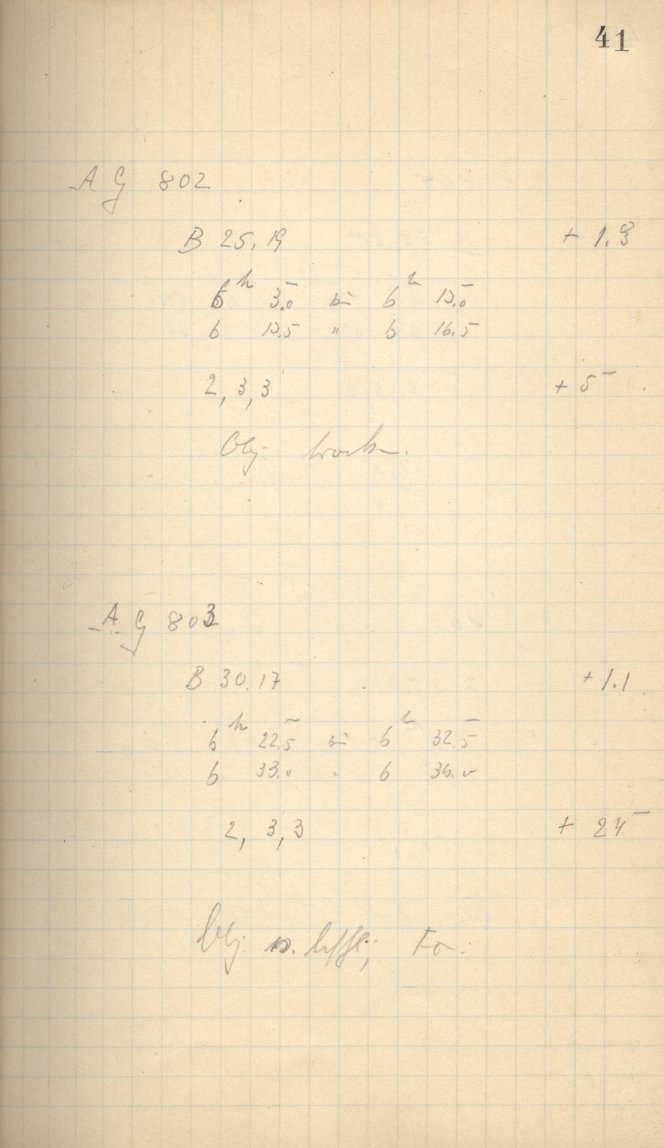 41
AG 802
B 25.19 + 1.3
6h 3.0 bis 6h 13.0
6 13.5 " 6 16.5
2, 3, 3 + 5
Obj. trocken.
AG 803
B 30.17 + 1.1
6h 22.5 bis 6h 32.5
6 33.0 " 6 36.0
2, 3, 3 + 24
Obj.